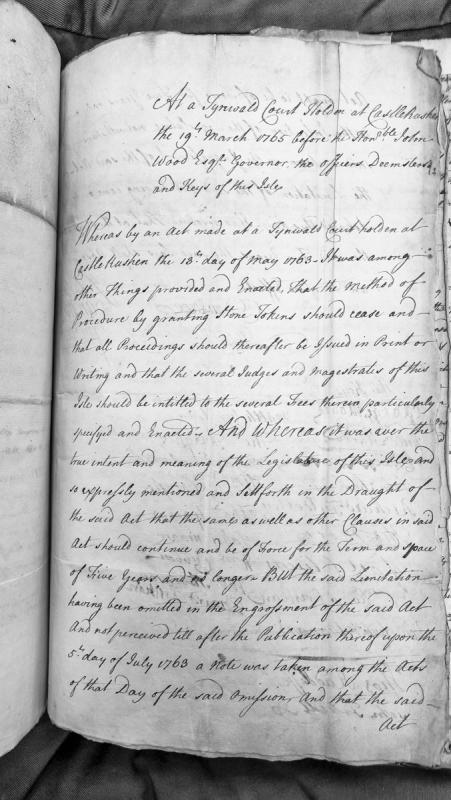 At a Tynwald Court Holden at CastleRushen
the 19th March 1765 before the Honble John
Wood Esqr. Governor, the Officers Deemsters
and Keys of this Isle
Whereas by an Act made at a Tynwald Court holden at
CastleRushen the 13th day of May 1763 - It was among
other Things provided and Enacted, That the Method of
Procedure by granting Stone Tokens should cease and
that all Proceedings should thereafter be Issued in Print or
Writing and that the several Judges and magistrates of this
Isle should be intitled to the several Fees therein particularly
specifyed and Enacted. And Whereas it was ever the
true intent and meaning of the Legislature of this Isle and
so expressly mentioned and Settforth in the Draught of
the said Act that the same as well as other Clauses in said
Act should continue and be of Force for the Term and space
of Five Years and no longer But the said Limitation
having been omitted in the Engrossment of the said Act
And not perceived till after the Publication thereof upon the
5th day of July 1763 a Note was taken among the Acts
of that Day of the said Omission, And that the said
Act